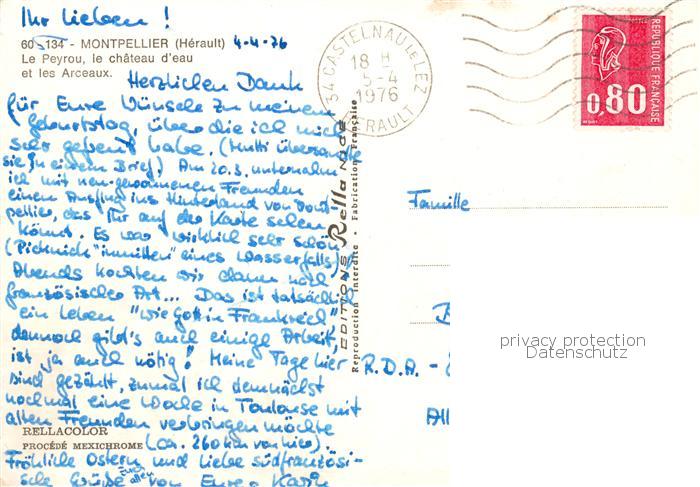 Ihr Lieben!
60 - 134 - MONTPELLIER (Hérault) 4-4-76
Le Peyrou, le château d'eau
et les Arceaux.
Herzlichen Dank
für Eure Wünsche zu meinem
Geburtstag, über die ich mich
sehr gefreut habe. (Mutti übersandte
sie in einem Brief). Am 20.3. unternahm
ich mit neu-gewonnenen Freunden
einen Ausflug ins Hinterland von Mont-
pellier, das Ihr auf der Karte sehen
könnt. Es war wirklich sehr schön
(Picknick "inmitten" eines Wasserfalls)
Abends kochten wir dann nach
französischer Art... Das ist tatsächlich
ein Leben "wie Gott in Frankreich"
dennoch gibt's auch einige Arbeit,
ist ja auch nötig! Meine Tage hier
sind gezählt, zumal ich demnächst
nochmal eine Woche in Toulouse mit
alten Freunden verbringen möchte
RELLACOLOR
PROCÉDÉ MEXICHROME (ca. 260 km von hier).
Fröhliche Ostern und liebe südfranzösi-
sche Grüße Euch allen von Eurer Karin
EDITIONS Rella NICE
Reproduction Interdite - Fabrication Française
34 CASTELNAU LE LEZ
18 H
5-4
1976
HERAULT
REPUBLIQUE FRANÇAISE
0,80
Famille
R.D.A. -
privacy protection
Datenschutz